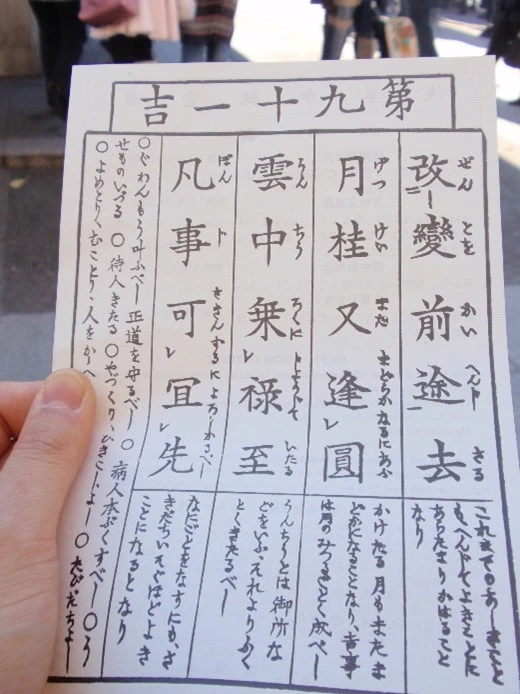 第九十一吉
改變前途去
ぜんとを かいへんト さる
これまでのあしきこと
も、へんじてよきことに
あらたまりかはること
なり
月桂又逢圓
げつけい また まどかなるにあふ
かけたる月もまたま
どかになることなり、吉事
は月のみつるごとく成べし
雲中乗禄至
うんちう ろくに じようじて いたる
うんちうとは御所な
どをいふ、それよりふく
とくきたるべし
凡事可宜先
ぼん ト
なにごとをなすにも、さ
きだちいそぐほどよき
ことになるとなり
○ぐわんもう叶ふべし 正道を守るべし ○病人本ぷくすべし ○う
せものいづる ○待人きたる ○やづくり、ひきこしよし ○たびだちよし
○よめとり、むことり、人をかゝへ